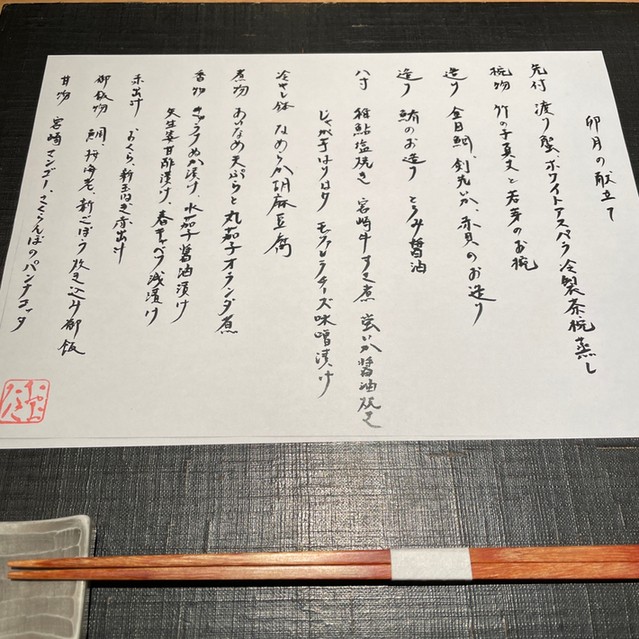 卯月の献立て
先付 渡り蟹、ホワイトアスパラ冷製茶椀蒸し
椀物 竹の子真丈と若芽のお椀
造り 金目鯛、剣先いか、赤貝のお造り
造り 鮪のお造り とろみ醤油
八寸 稚鮎塩焼き 宮崎牛すき煮 蛍いか醤油焼き
じゃが芋はりはり モッツァレラチーズ味噌漬け
冷やし鉢 なめらか胡麻豆腐
煮物 あいなめ天ぷらと丸茄子オランダ煮
香物 きゅうりぬか漬け、水茄子醤油漬け
矢生姜甘酢漬け、春キャベツ浅漬け
赤出汁 おくら、新玉ねぎ赤出汁
御飯物 鯛、桜海老、新ごぼう炊き込み御飯
甘物 宮崎マンゴー、さくらんぼのパンナコッタ